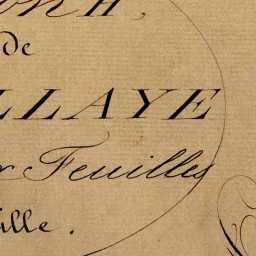 de
LLAYE
r Feuilles
ille.